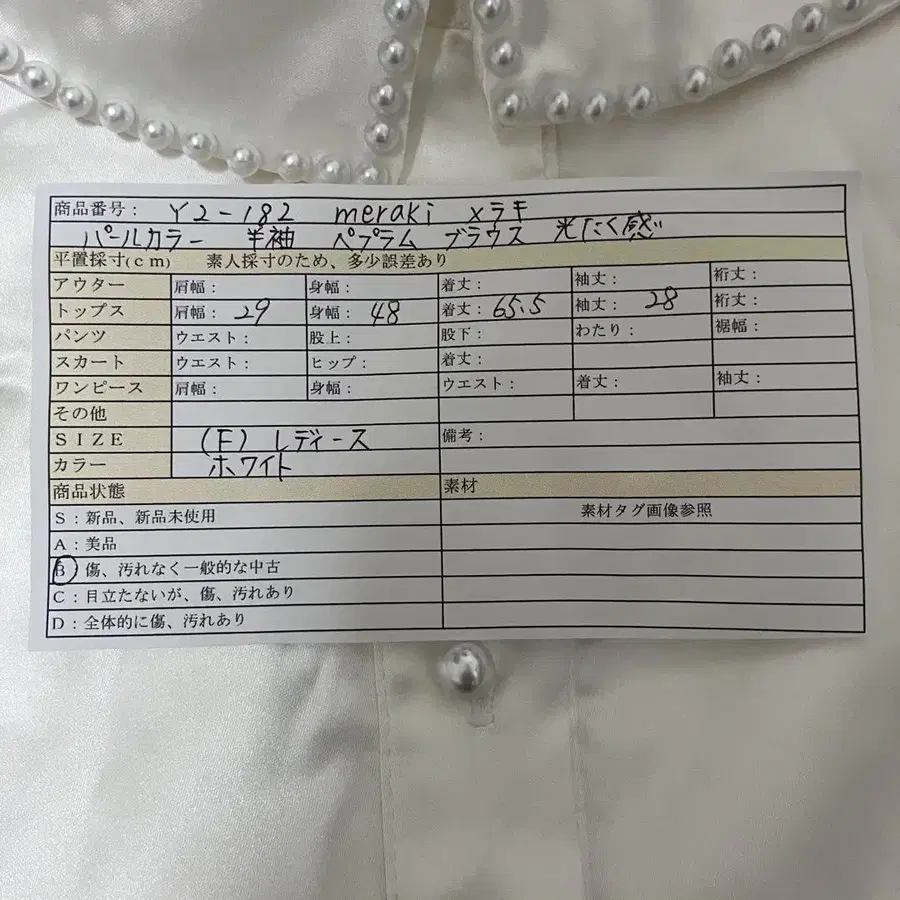 商品番号： Y2-182 meraki メラキ
パールカラー 半袖 ペプラム ブラウス 光たく感
平置採寸(cm) 素人採寸のため、多少誤差あり
アウター 肩幅： 身幅： 着丈： 袖丈： 裄丈：
トップス 肩幅： 29 身幅： 48 着丈： 65.5 袖丈： 28 裄丈：
パンツ ウエスト： 股上： 股下： わたり： 裾幅：
スカート ウエスト： ヒップ： 着丈：
ワンピース 肩幅： 身幅： ウエスト： 着丈： 袖丈：
その他
SIZE (F) レディース 備考：
カラー ホワイト
商品状態 素材
S：新品、新品未使用 素材タグ画像参照
A：美品
B 傷、汚れなく一般的な中古
C：目立たないが、傷、汚れあり
D：全体的に傷、汚れあり